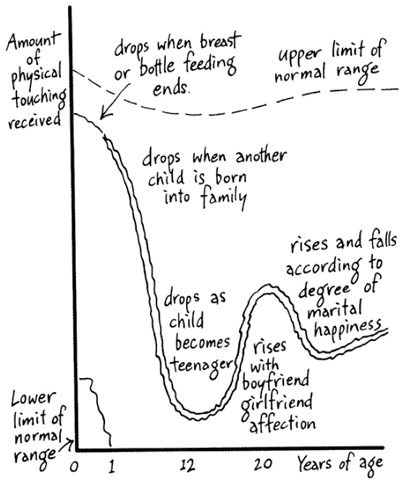 Amount
of
physical
touching
received
drops when breast
or bottle feeding
ends.
upper limit of
normal range
drops when another
child is born
into family
rises and falls
according to
degree of
marital
happiness
drops as
child
becomes
teenager
rises
with
boyfriend
girlfriend
affection
Lower
limit of
normal
range
0 1 12 20 Years of age